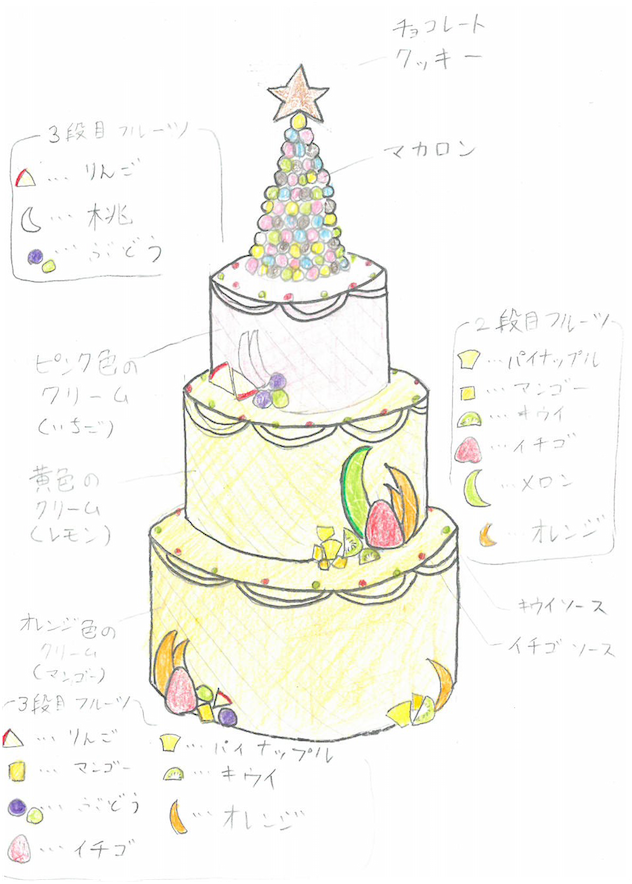 チョコレート
クッキー
マカロン
3段目フルーツ
… りんご
… 桃
… ぶどう
ピンク色の
クリーム
(いちご)
2段目フルーツ
… パイナップル
… マンゴー
… キウイ
… イチゴ
… メロン
… オレンジ
黄色の
クリーム
(レモン)
キウイソース
イチゴソース
オレンジ色の
クリーム
(マンゴー)
3段目フルーツ
… りんご
… マンゴー
… ぶどう
… イチゴ
… パイナップル
… キウイ
… オレンジ